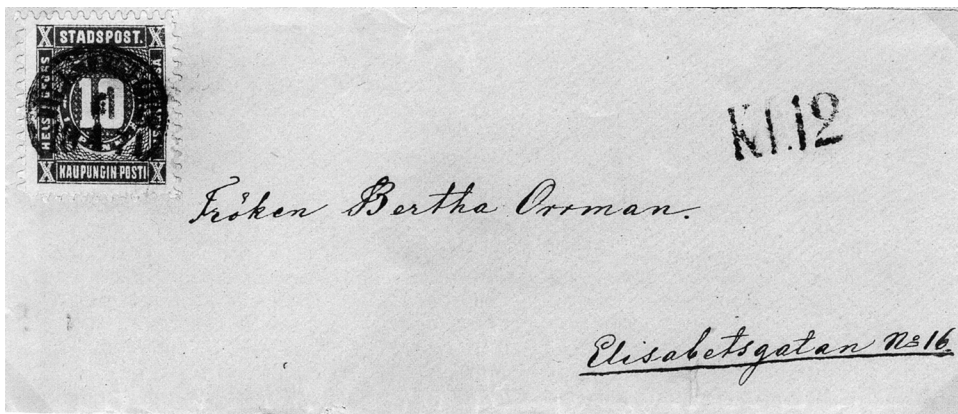 STADSPOST.
HELSINGFORS
10
KAUPUNGIN POSTI
Kl.12
Fröken Bertha Orrman.
Elisabetsgatan No 16.